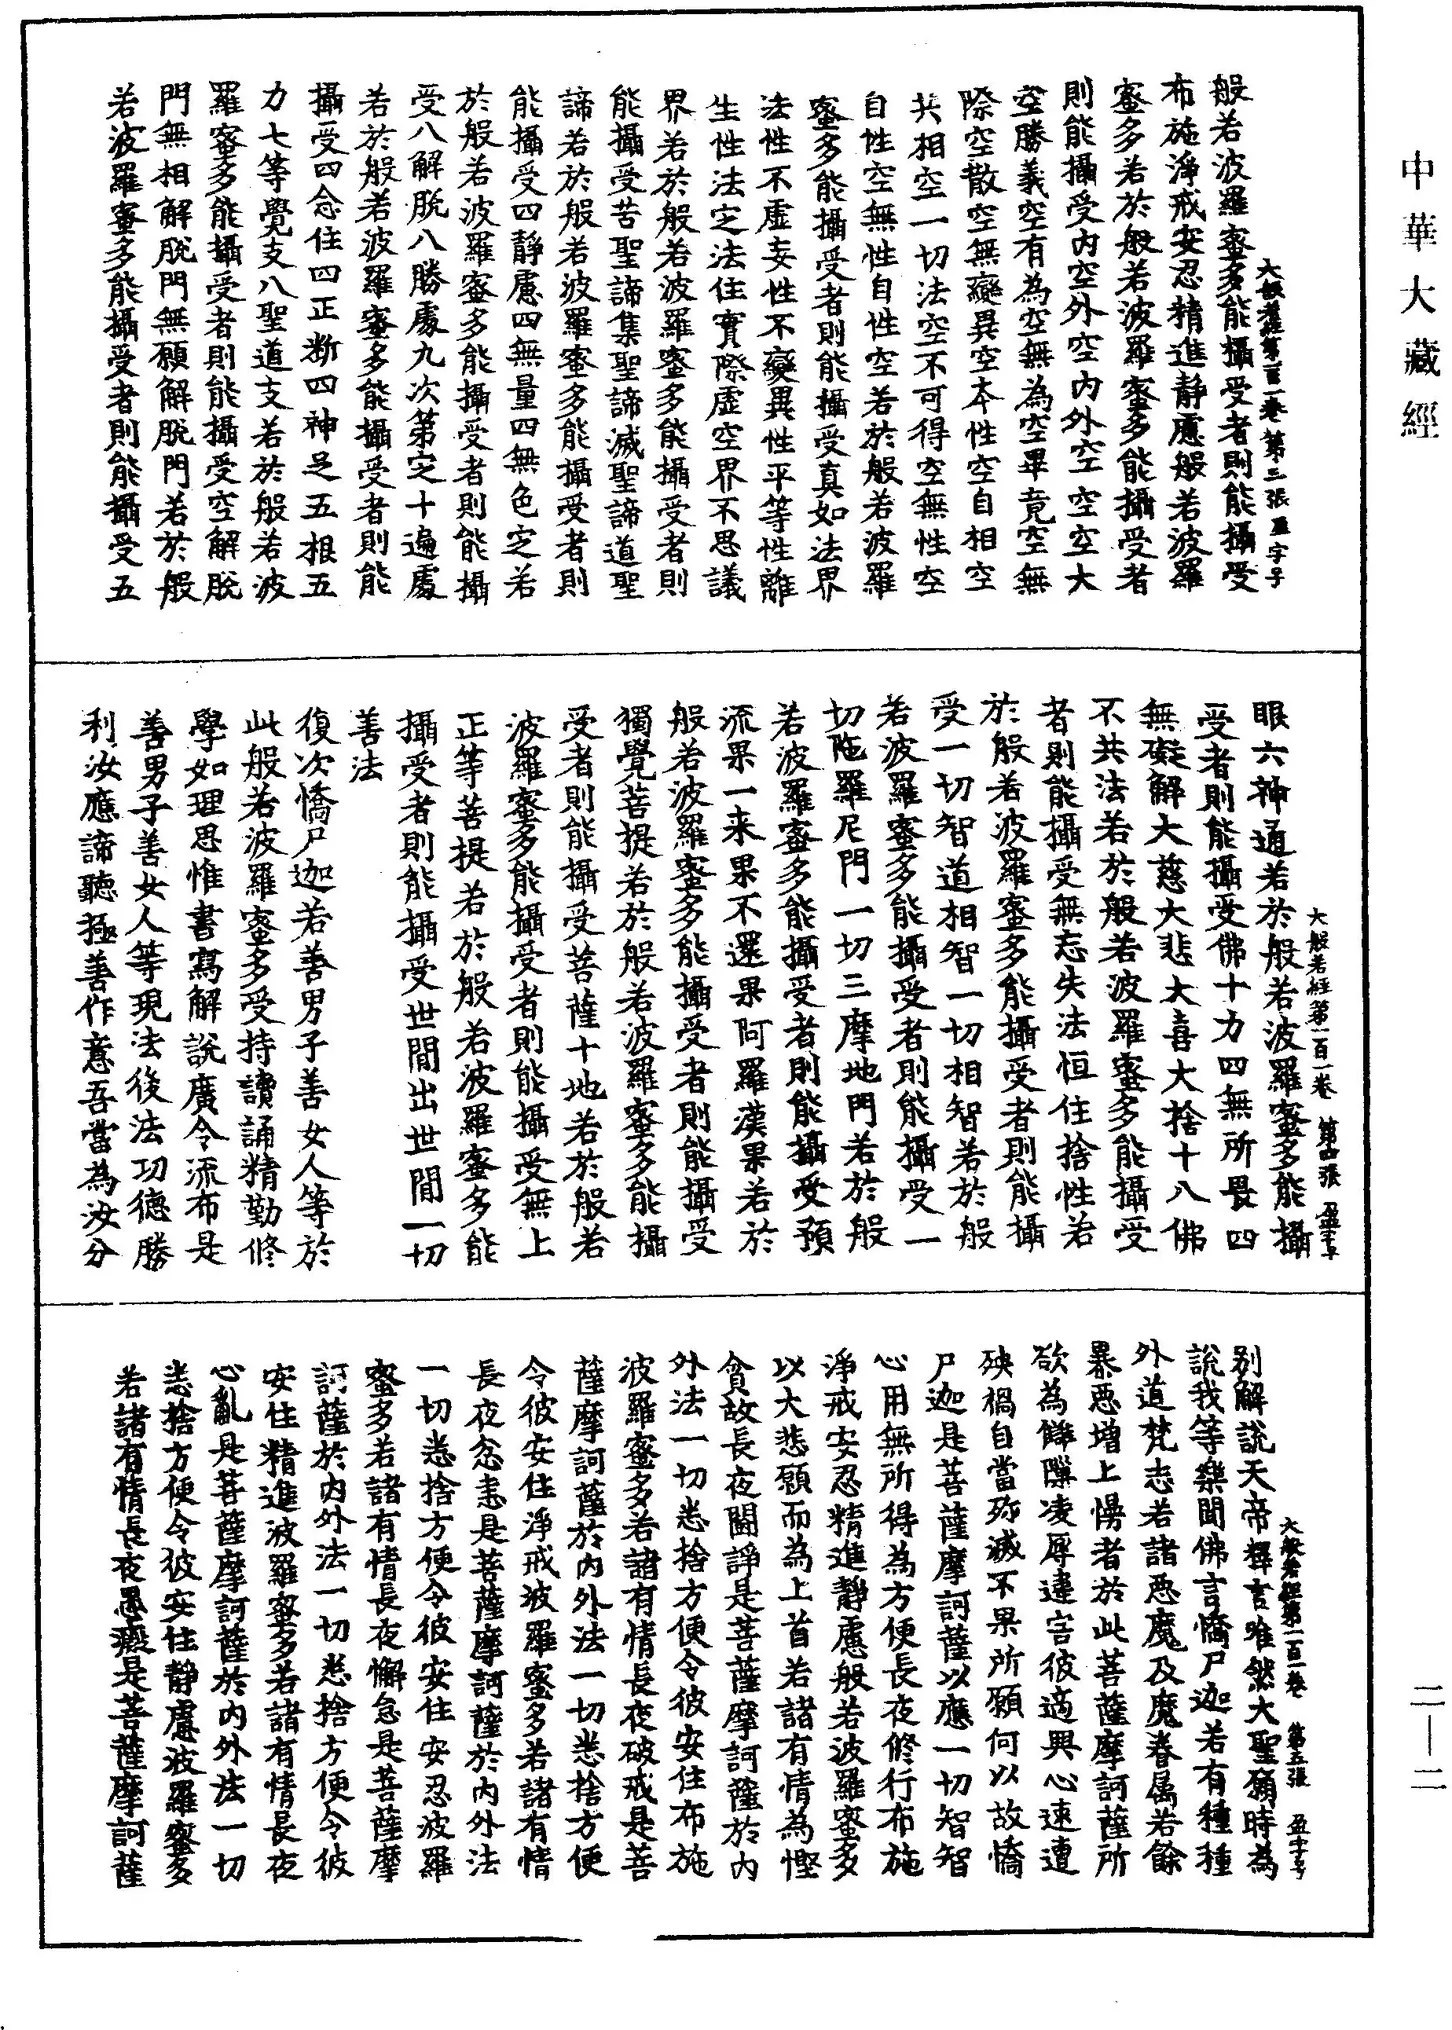 中華大藏經
大般若經第一百一卷 第三張 盈字号
般若波羅蜜多能攝受者則能攝受
布施淨戒安忍精進靜慮般若波羅
蜜多若於般若波羅蜜多能攝受者
則能攝受內空外空內外空空空大
空勝義空有為空無為空畢竟空無
際空散空無變異空本性空自相空
共相空一切法空不可得空無性空
自性空無性自性空若於般若波羅
蜜多能攝受者則能攝受真如法界
法性不虛妄性不變異性平等性離
生性法定法住實際虛空界不思議
界若於般若波羅蜜多能攝受者則
能攝受苦聖諦集聖諦滅聖諦道聖
諦若於般若波羅蜜多能攝受者則
能攝受四靜慮四無量四無色定若
於般若波羅蜜多能攝受者則能攝
受八解脫八勝處九次第定十遍處
若於般若波羅蜜多能攝受者則能
攝受四念住四正斷四神足五根五
力七等覺支八聖道支若於般若波
羅蜜多能攝受者則能攝受空解脫
門無相解脫門無願解脫門若於般
若波羅蜜多能攝受者則能攝受五
大般若經第一百一卷 第四張 盈字号
眼六神通若於般若波羅蜜多能攝
受者則能攝受佛十力四無所畏四
無礙解大慈大悲大喜大捨十八佛
不共法若於般若波羅蜜多能攝受
者則能攝受無忘失法恒住捨性若
於般若波羅蜜多能攝受者則能攝
受一切智道相智一切相智若於般
若波羅蜜多能攝受者則能攝受一
切陁羅尼門一切三摩地門若於般
若波羅蜜多能攝受者則能攝受預
流果一来果不還果阿羅漢果若於
般若波羅蜜多能攝受者則能攝受
獨覺菩提若於般若波羅蜜多能攝
受者則能攝受菩薩十地若於般若
波羅蜜多能攝受者則能攝受無上
正等菩提若於般若波羅蜜多能
攝受者則能攝受世間出世間一切
善法
復次憍尸迦若善男子善女人等於
此般若波羅蜜多受持讀誦精勤修
學如理思惟書寫解說廣令流布是
善男子善女人等現法後法功德勝
利汝應諦聽極善作意吾當為汝分
大般若經第一百一卷 第五張 盈字号
別解說天帝釋言唯然大聖願時為
說我等樂聞佛言憍尸迦若有種種
外道梵志若諸惡魔及魔眷屬若餘
暴惡增上慢者於此菩薩摩訶薩所
欲為餚隟凌辱違害彼適興心速遭
殃禍自當殄滅不果所願何以故憍
尸迦是菩薩摩訶薩以應一切智智
心用無所得為方便長夜修行布施
淨戒安忍精進靜慮般若波羅蜜多
以大悲願而為上首若諸有情為慳
貪故長夜鬪諍是菩薩摩訶薩於內
外法一切悉捨方便令彼安住布施
波羅蜜多若諸有情長夜破戒是菩
薩摩訶薩於內外法一切悉捨方便
令彼安住淨戒波羅蜜多若諸有情
長夜忿恚是菩薩摩訶薩於內外法
一切悉捨方便令彼安住安忍波羅
蜜多若諸有情長夜懈怠是菩薩摩
訶薩於內外法一切悉捨方便令彼
安住精進波羅蜜多若諸有情長夜
心亂是菩薩摩訶薩於內外法一切
悉捨方便令彼安住靜慮波羅蜜多
若諸有情長夜愚癡是菩薩摩訶薩
二—二